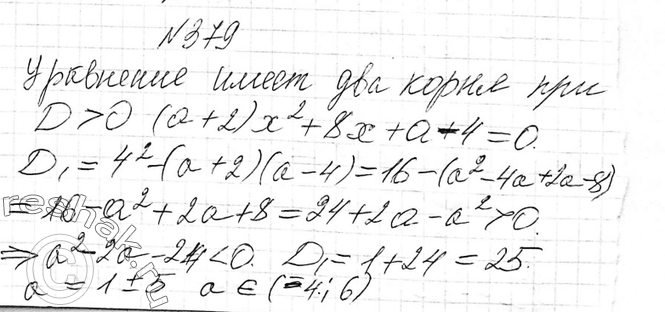 №379
Уравнение имеет два корня при
D>0 (a+2)x²+8x+a-4=0.
D₁=4²-(a+2)(a-4)=16-(a²-4a+2a-8)
=16-a²+2a+8=24+2a-a²>0.
⇒ a²-2a-24<0. D₁=1+24=25.
a=1±5 a∈(-4; 6)
reshak.ru